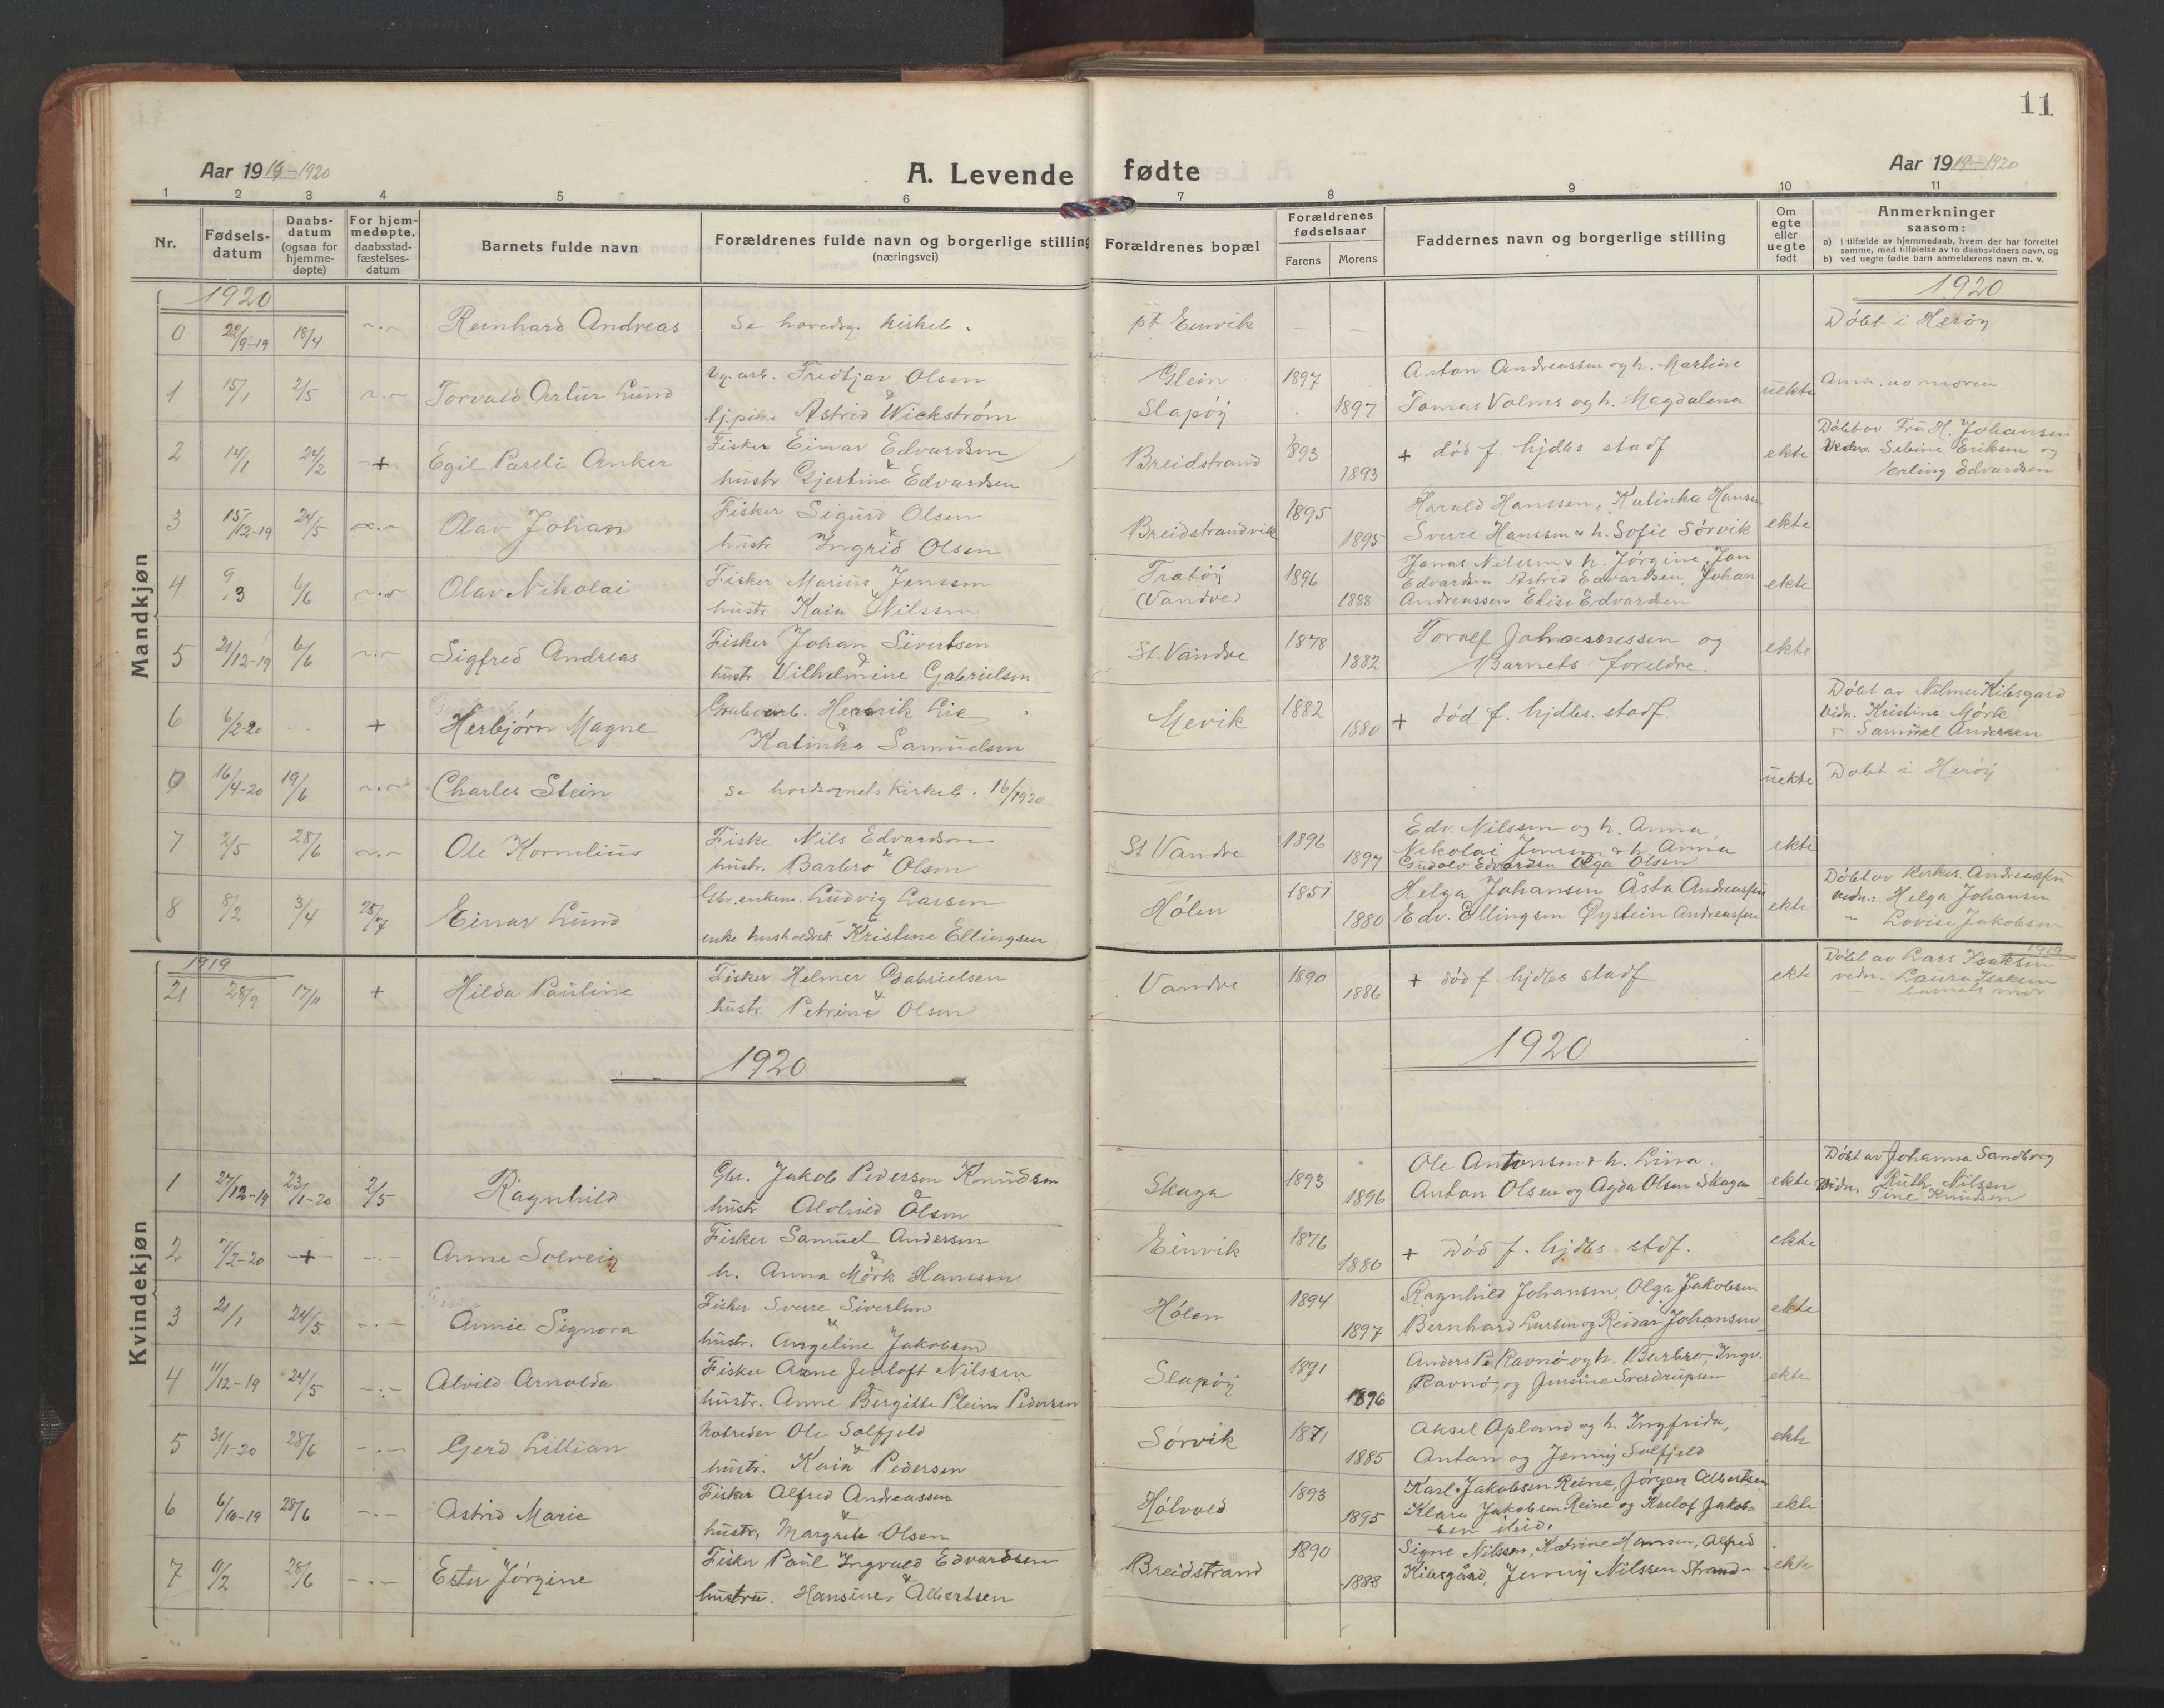 11
Aar 1919-1920
A. Levende fødte
Aar 1919-1920
1 2 3 4 5 6 7 8 9 10 11
Nr.
Fødsels-
datum
Daabs-
datum
(ogsaa for
hjemme-
døpte)
For hjem-
medøpte,
daabsstad-
fæstelses-
datum
Barnets fulde navn
Forældrenes fulde navn og borgerlige stilling
(næringsvei)
Forældrenes bopæl
Forældrenes
fødselsaar
Farens Morens
Faddernes navn og borgerlige stilling
Om
egte
eller
uegte
født
Anmerkninger
saasom:
a) i tilfælde av hjemmedaab, hvem der har forrettet
samme, med tilføielse av to daabsvidners navn, og
b) ved uegte fødte barn anmelderens navn m. v.
Mandkjøn
1920
1920
0 22/9-19 18/4 Reinhard Andreas se hovedsg. kirkeb. pt Einvik Döbt i Herøy
1 15/1 2/5 Torvald Artur Lund
Ug. arb. Fredtjav Olsen
&
tj.pike Astrid Wickström
Glein
Slapøy
1897
1897
Anton Andreassen og h. Martine
Tomas Volms og h. Magdalena
uekte
Anm. av moren
2 14/1 24/2 + Egil Pareli Anker
Fisker Einar Edvardsen
&
hustr Gjertine Edvardsen
Breidstrand
1893
1893
+ död f. hjdbs stadf
ekte
Döbt av Fru H. Johansen
Vidn. Sebine Eriksen og
Erling Edvardsen
3 15/12-19 24/5 Olav Johan
Fisker Sigurd Olsen
&
hustr Ingrid Olsen
Breidstrandvik
1895
1895
Harald Hanssen, Kalinka Hansen
Sverre Hanssen & h. Sofie Sörvik
ekte
4 9/3 6/6 Olav Nikolai
Fisker Marius Jenssen
&
hustr Kaia Nilssen
Tratöy
(Vandve)
1896
1888
Jonas Nilssen & h. Jörgine, Jan
Edvardsen Astrid Edvardsen, Johan
Andreassen Elise Edvardsen
ekte
5 21/12-19 6/6 Sigfred Andreas
Fisker Johan Sivertsen
&
hustr Vilhelmine Gabrielsen
St. Vandve
1878
1882
Toralf Johannessen og
Barnets foreldre.
ekte
6 6/2-20 + Herbjørn Magne
Grubearb. Henrik Lie
&
Katinka Samuelsen
Mevik
1882
1880
+ död f. hjdbs. stadf.
Döbt av Nilmer Kilesgard
Vidn. Kristine Mörk
" Samuel Andersen
0 16/4-20 19/6 Charles Stein se hovdsognets kirkeb. 16/1920 uekte Döbt i Herøy
7 2/5 28/6 Ole Kornelius
Fiske Nils Edvardsen
&
hustr. Barbro Olsen
St Vandve
1896
1897
Edv. Nilssen og h. Anna,
Nikolai Jensen & h. Anna
Gudolv Edvardsen Olga Olsen
ekte
8 8/2 3/4 25/7 Einar Lund
Gbr. enkem. Ludvig Larsen
&
enke husholdersk Kristine Ellingsen
Hölen
1851
1880
Helga Johansen Åsta Andreassen
Edv. Ellingsen Øystein Andreassen
ekte
Döbt av Kirkes. Andreassen
vidn: Helga Johansen
" Lovise Jakobsen
Kvindekjøn
1919
1919
21 28/9 17/11 + Hilda Pauline
Fisker Helmer Gabrielsen
&
hustr. Petrine Olsen
Vandve
1890
1886
+ död f. hjdbs stadf
ekte
Döbt av Lars Isaksen
vidn. Laura Isaksen
barnets mor
1920
1920
1 27/12-19 23/1-20 2/5 Ragnhild
Gbr. Jakob Pedersen Knudsen
&
hustr Alohild Olsen
Skaga
1893
1896
Ole Antonsen & h. Lina.
Anton Olsen og Agda Olsen Skaga
ekte
Döbt av Johanna Sandberg
Vidn. Ruth Nilssen
Tine Knudsen
2 7/2-20 + Anne Solveig
Fisker Samuel Andersen
&
h. Anna Mörk Hanssen
Einvik
1876
1880
+ Död f. hjdbs stdf.
ekte
3 21/1 24/5 Annie Signora
Fisker Sverre Sivertsen
&
hustr. Angeline Jakobsen
Hölen
1894
1897
Ragnhild Johansen, Olga Jakobsen
Bernhard Larsen og Reidar Johansen
ekte
4 11/12-19 24/5 Alvild Arnolda
Fisker Arne Jentoft Nilssen
&
hustr. Anne Bergitte Plein Pedersen
Slapöy
1891
1896
Anders P. Ravnö og h. Barbro, Ingv.
Ravnö, og Jensine Sverdrupsen
ekte
5 31/1-20 28/6 Gerd Lillian
Notreder Ole Solfjeld
&
hustr. Kaia Pedersen
Sörvik
1871
1885
Aksel Apland og h. Ingfrida,
Anton og Jenny Solfjeld
ekte
6 6/10-19 28/6 Astrid Marie
Fisker Alfred Andreassen
&
hustr. Margrete Olsen
Hölvold
1893
1895
Karl Jakobsen Reine, Jörgen Albertsen
Klara Jakobsen Reine og Karlof Jakob-
sen ibid.
ekte
7 11/2 28/6 Ester Jörgine
Fisker Paul Ingvald Edvardsen
&
hustru. Hansine Albertsen
Breidstrand
1890
1888
Signe Nilssen, Katrine Hansen, Alfred
Kilesgård, Jenny Nilssen Strand
ekte